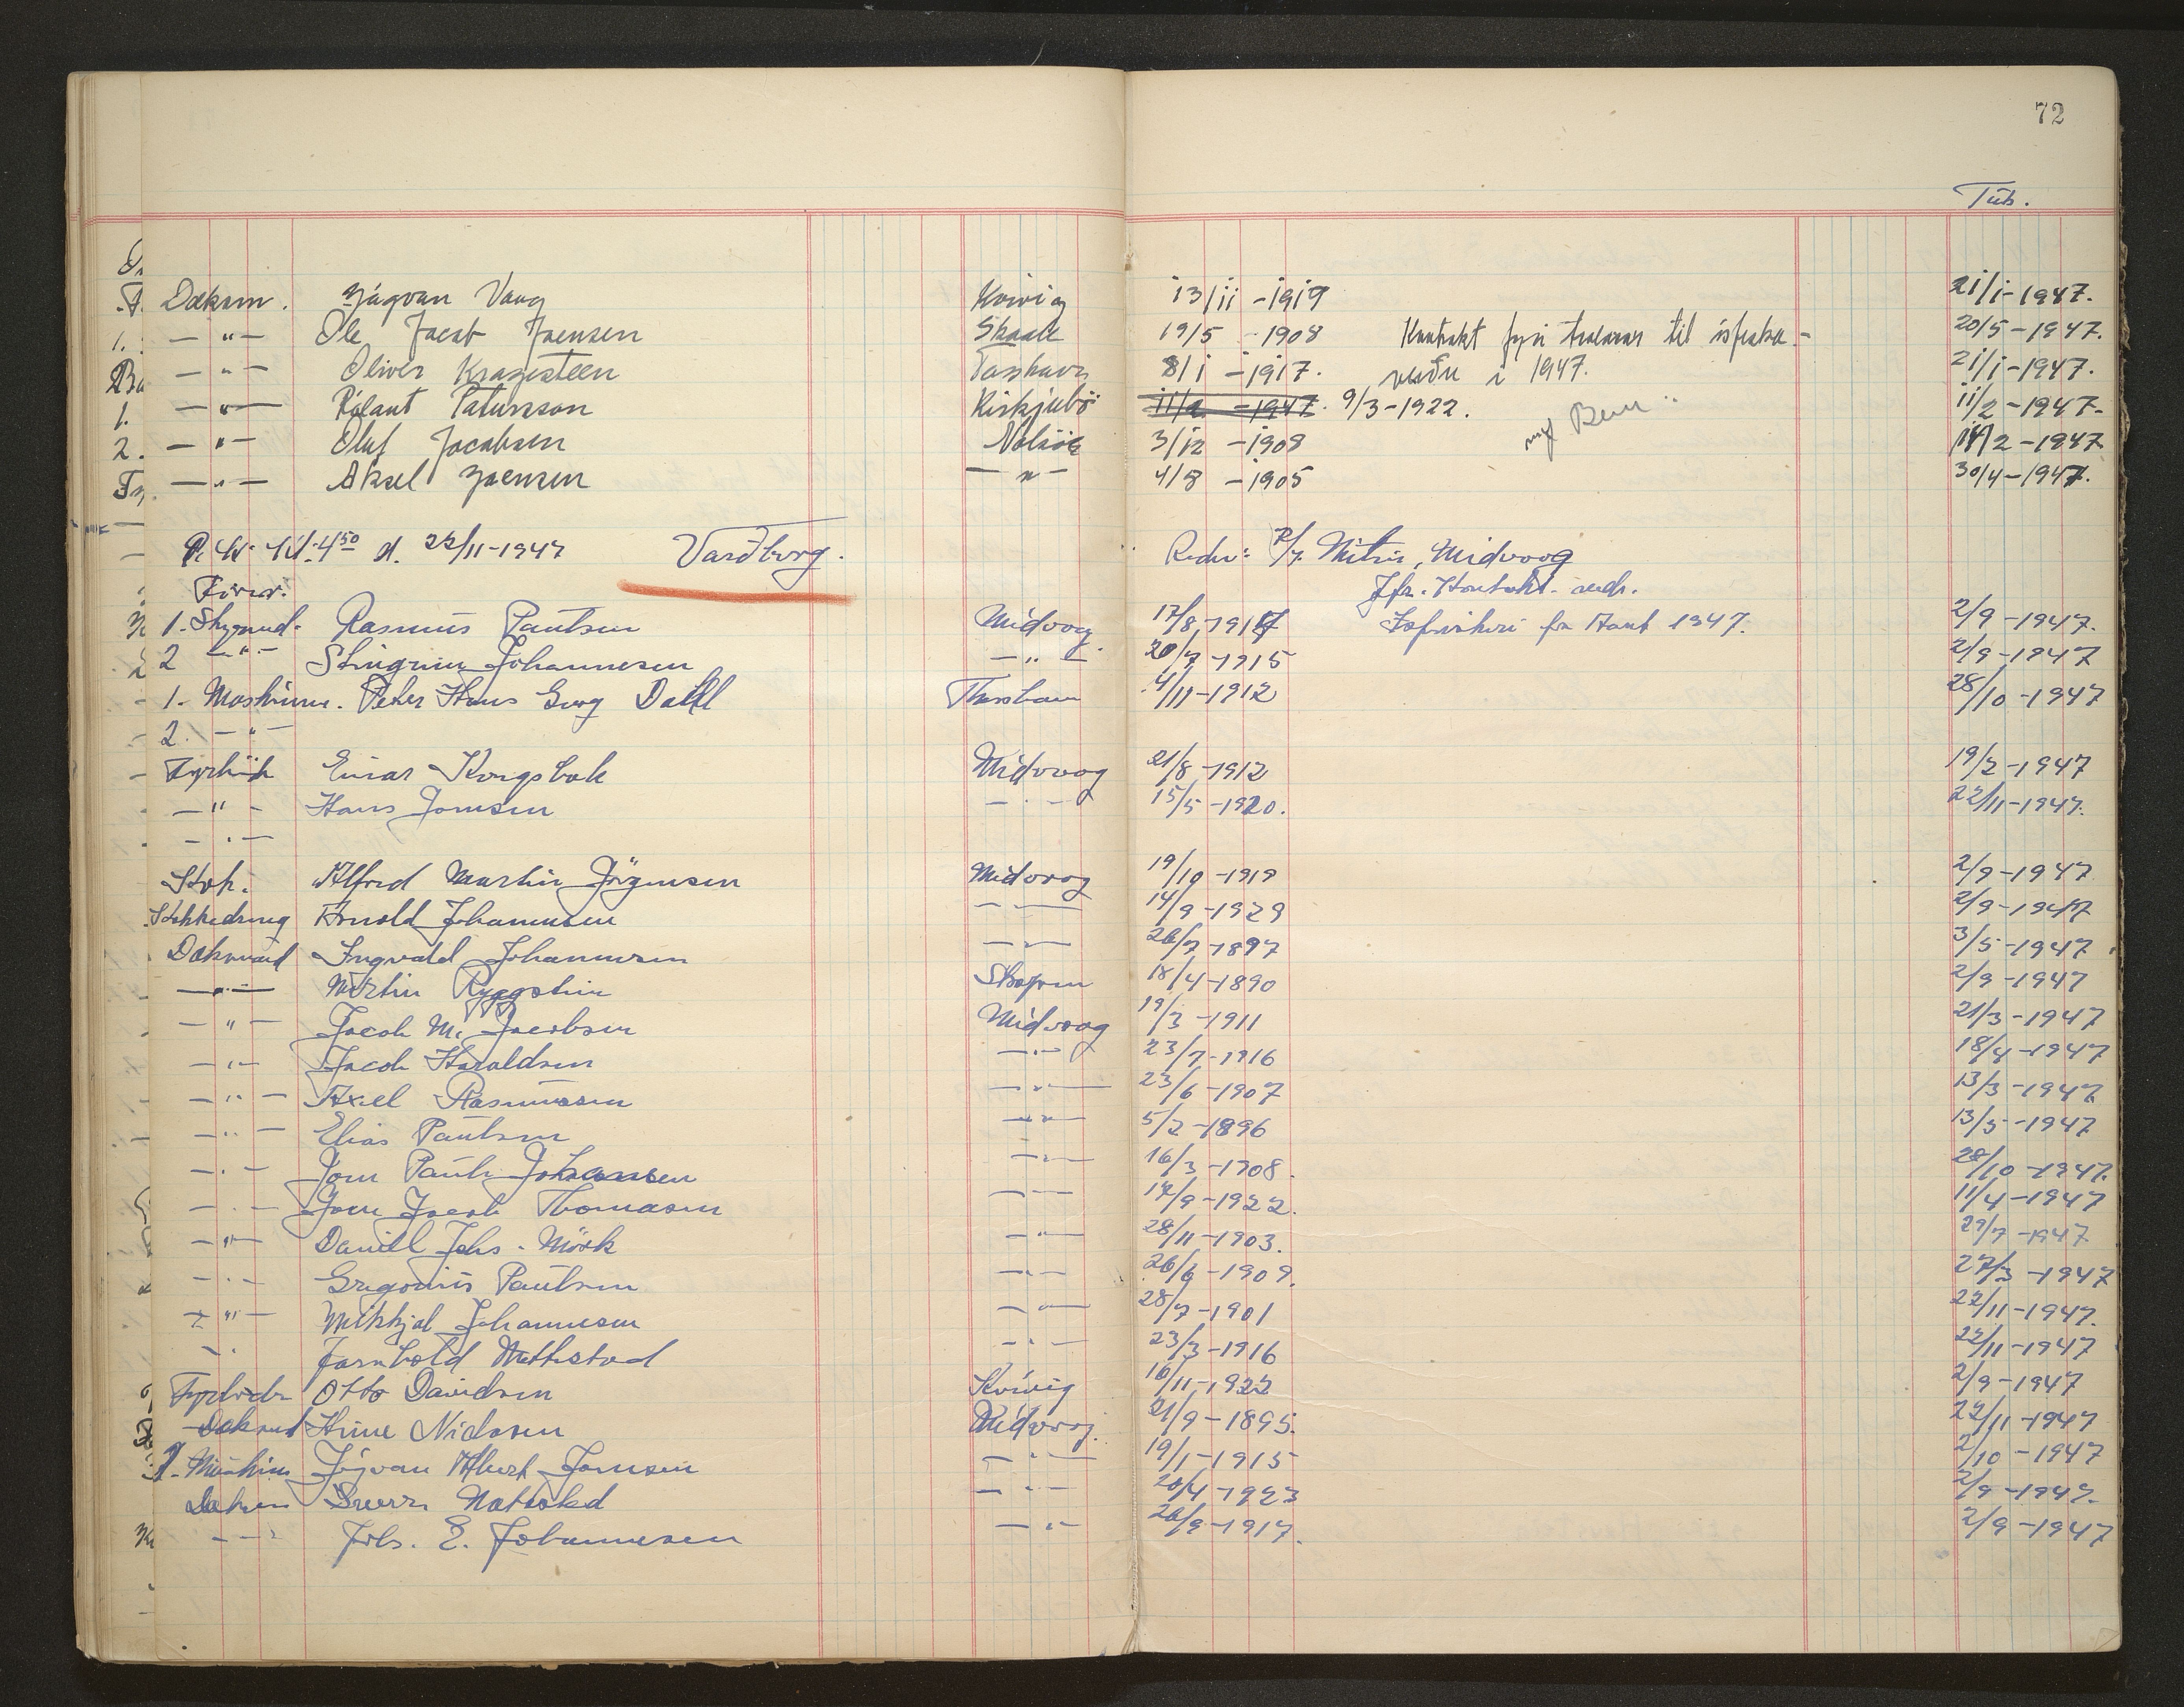 72
Tub.
Dæksm. Jógvan Vang Kvívig 13/11 - 1919 21/1 - 1947.
— " — Ole Jacob Joensen Skaale 19/5 - 1908 Kontrakt fyri trolarar til ísfiska- 20/5 - 1947.
— " — Oliver Kragesteen 8/1 - 1917. veiðu í 1947. 21/1 - 1947.
— " — Póland Patursson Kirkjubö 11/2 - 1947. 9/3 - 1922. 11/2 - 1947-
— " — Oluf Jacobsen Nolsöe 3/12 - 1908 /2 - 1947
— " — Aksel Joensen — " — 4/8 - 1905 30/4 - 1947.
Kl. 4 50 d. 22/11-1947 Varðborg. Reder: P/f. Midvoog
Förer: Jfr. Kontrakt. andr.
1. Styrmd. Rasmus Paulsen Midvoog 17/8-191 Isfiskeri fra 1947. 2/9 - 1947.
2 — " — Steingrim Johannesen — " — 20/7-1915 2/9 - 1947
1. Maskinm. Peter Hans Georg Dahl Thorshavn 4/11-1912 28/10 - 1947
2. — " —
Fyrböder Einar Kongsbak Midvoog 21/8 - 1912 19/2 - 1947
— " — Hans Joensen — " — 15/5 - 1920. 22/11 - 1947.
— " —
Kok. Alfred Martin Jörgensen Midvoog 19/10 - 1919 2/9 - 1947
Kokkedreng Arnold Johannesen — " — 14/9 - 1929 2/9 - 1947
Dæksmand Ingvald Johannesen — " — 26/7 - 1897 3/5 - 1947
— " — Martin Ryggstein Skopun 18/4 - 1890 2/9 - 1947
— " — Jacob M. Jacobsen Midvoog 19/3 - 1911 21/3 - 1947
— " — Jacob Haraldsen — " — 23/7 - 1916 18/4 - 1947
— " — Axel Rasmussen — " — 23/6 - 1907 13/3 - 1947
— " — Elias Paulsen — " — 5/2 - 1896 13/5 - 1947
— " — Joen Pauli Johansen — " — 16/3 - 1908. 28/10 - 1947.
— " — Joen Jacob Thomasen — " — 17/9 - 1922. 11/4 - 1947
— " — Daniel Johs. Mörk — " — 28/11 - 1903. 29/7 - 1947
— " — Gregorius Paulsen — " — 26/6 - 1909. 27/3 - 1947
— " — Mikkjal Johannesen — " — 28/7 - 1901 22/11 - 1947.
— " — Jarnhold Nattestad — " — 23/3 - 1916 22/11 - 1947
Fyrböder Otto Davidsen Kvívig 16/11 - 1922 2/9 - 1947
Dæksmd Hine Niclasen Midvoog. 21/9 - 1895. 22/11 - 1947
Maskinm Jógvan Albert Joensen — " — 19/1 - 1915 2/10 - 1947
Dæksm Sverri Nattestad — " — 20/4 - 1923 2/9 - 1947.
— " — Johs. E. Johannesen — " — 26/9 - 1917. 2/9 - 1947